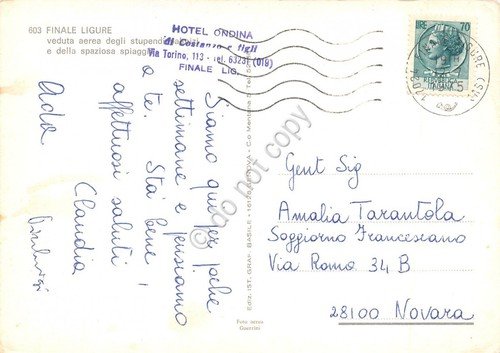 603 FINALE LIGURE
veduta aerea degli stupendi
e della spaziosa spiaggia
HOTEL ONDINA
di Costanzo e figli
Via Torino, 113 - Tel. 63231 (019)
FINALE LIG.
LIRE 70
Siamo qui per poche
settimane e pensiamo
a te. Sta bene!
affettuosi saluti
Claudia
Ada
Ediz. IST. GRAF. BASILE - GENOVA
Foto aerea
Guerrini
Gent Sig
Amalia Tarantola
Soggiorno Francescano
Via Roma 34 B
28100 Novara
do not copy